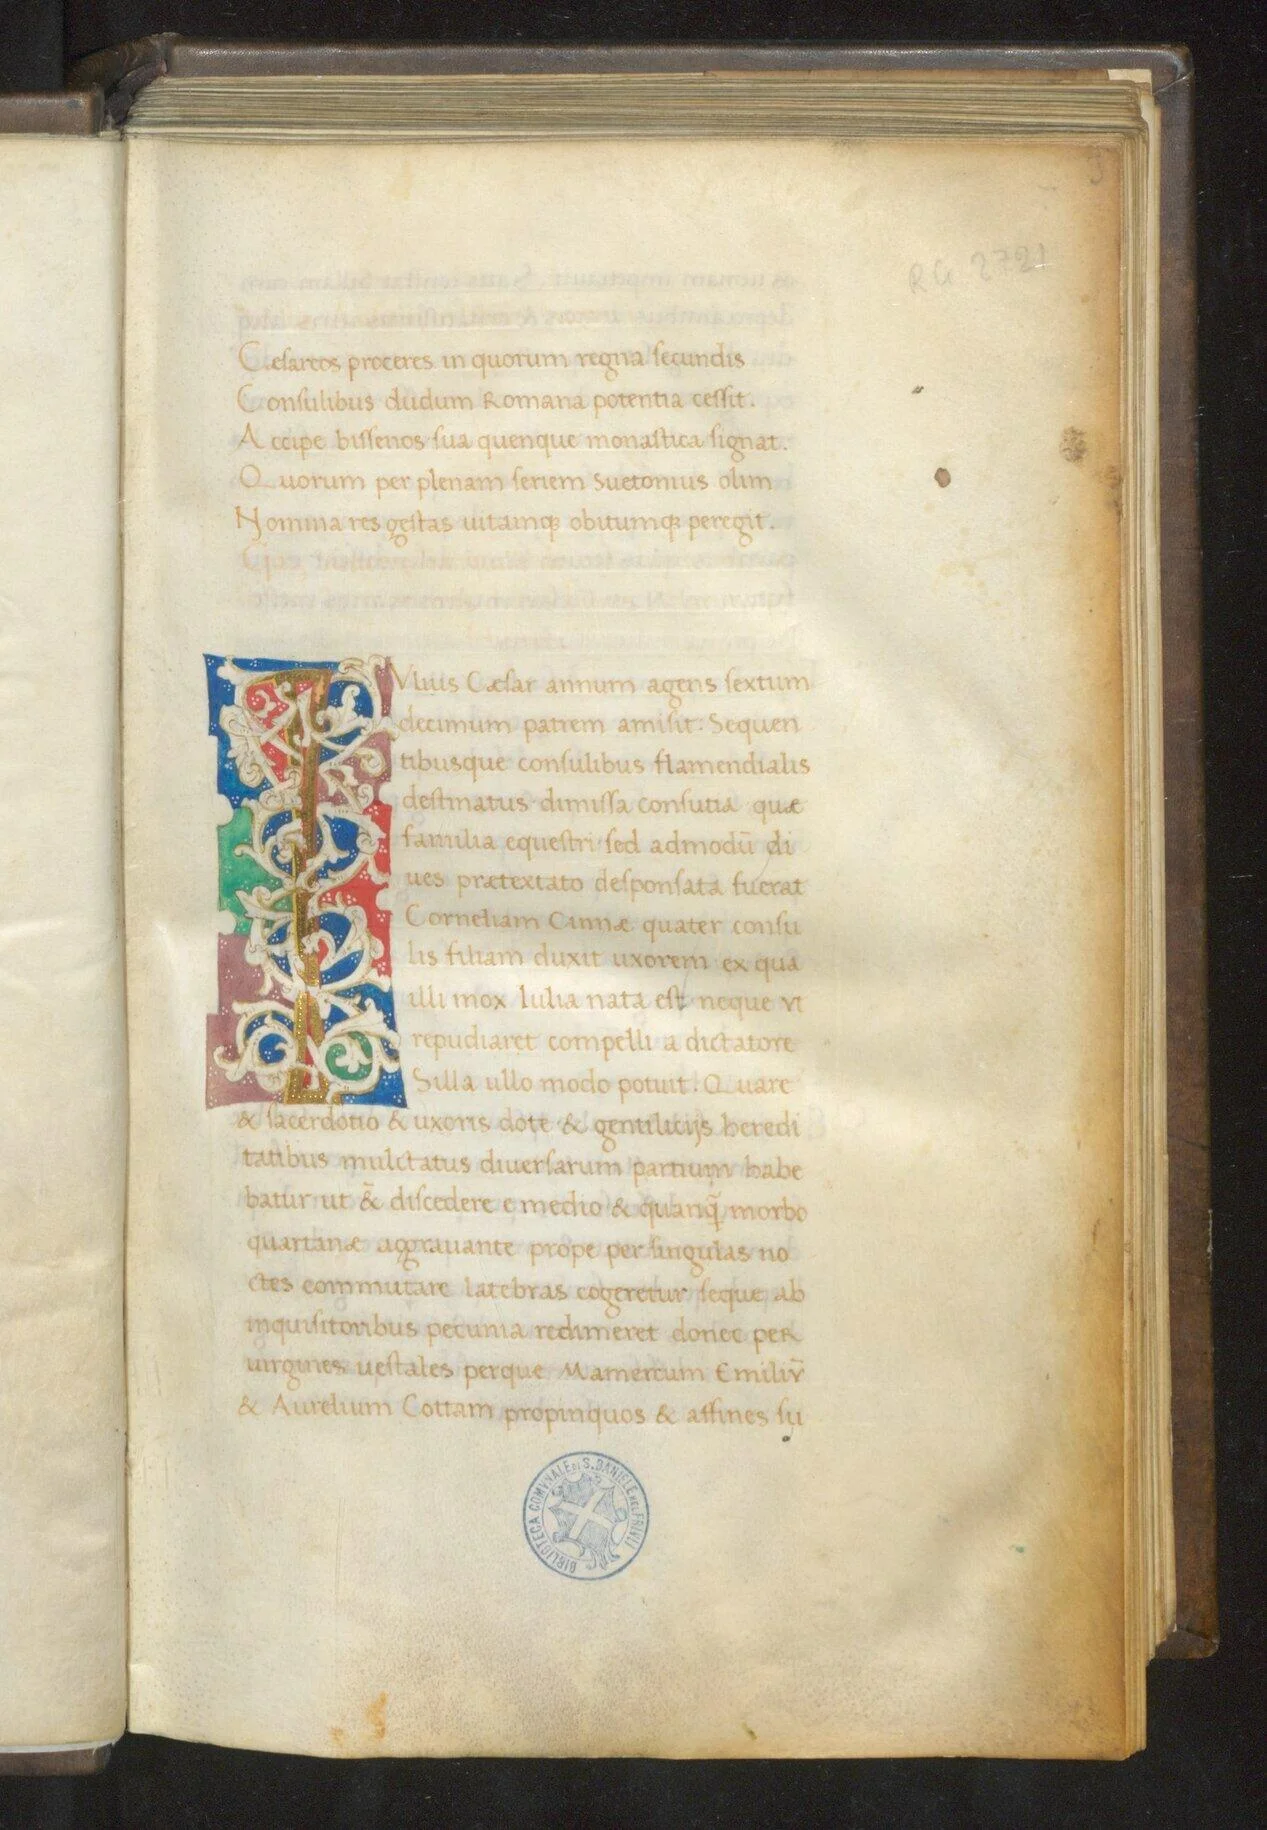 RG 2721
Cæsareos proceres in quorum regna secundis
Consulibus dudum Romana potentia cessit.
Accipe bissenos sua quenque monastica signat.
Quorum per plenam seriem Suetonius olim
Nomina res gestas uitamqꝫ obitumqꝫ peregit.
IVlius Cæsar annum agens sextum
decimum patrem amisit. Sequen
tibusque consulibus flamendialis
destinatus dimissa consutia quæ
familia equestri sed admodū di
ues prætextato desponsata fuerat
Corneliam Cinnæ quater consu
lis filiam duxit uxorem ex qua
illi mox Iulia nata est neque vt
repudiaret compelli a dictatore
Silla ullo modo potuit. Quare
& sacerdotio & uxoris dote & gentilicijs heredi
tatibus mulctatus diuersarum partium habe
batur ut &̄ discedere e medio & quanq̄ morbo
quartanæ aggrauante prope per singulas no
ctes commutare latebras cogeretur seque ab
inquisitoribus pecunia redimeret donec per
uirgines uestales perque Mamercum Emiliv̄
& Aurelium Cottam propinquos & affines su
BIBLIOTECA COMVNALE DI S. DANIELE NEL FRIVLI